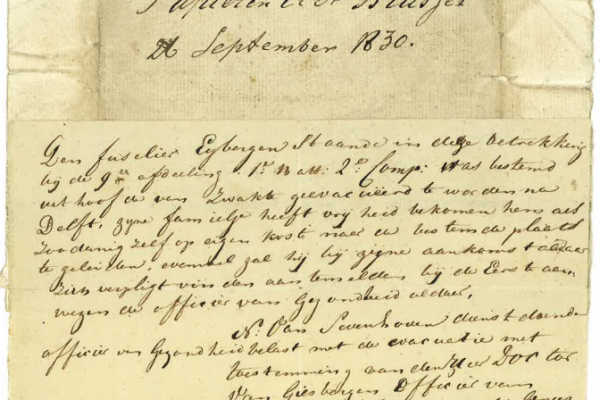 Papieren uit Brussel
26 September 1830.
Den fuselier Eybergen Staande in deze betrekking
bij de 9de afdeeling 1e Batt: 2e Comp: was bestemd
uit hoofde van Zwakte geevacuëerd te worden na
Delft, zyne familje heeft vrijheid bekomen hem als
Zoodanig zelf op eigen kost naar de bestemde plaats
te geleiden, evenwel zal hij bij zijne aankomst aldaar
Zich verpligt vinden aan te melden bij de Eerst aan-
wezende officier van Gezondheid aldaar,
N. Van Sevenhoven dienstdoende
officier van Gezondheid belast met de evacuatie met
toestemming van den Heer Doctor
Van Giesbergen Officier van